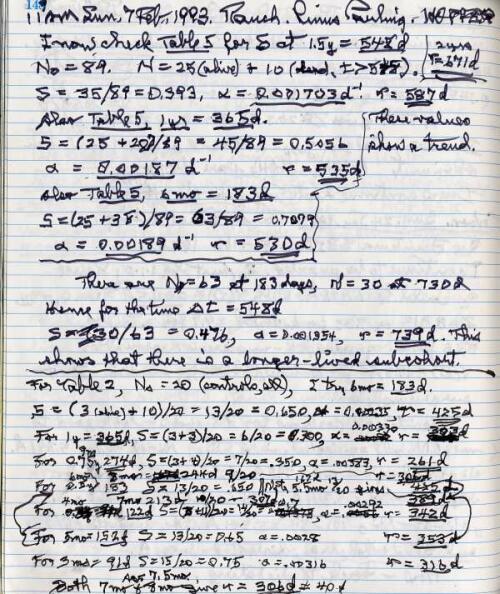 11 AM Sun. 7 Feb. 1993. Ranch. Linus Pauling.
I now check Table 5 for S at 1.5y = 548d
N₀ = 89. N = 25 (alive) + 10 (dead, t > 545).
S = 35/89 = 0.393, α = 0.001703 d⁻¹ τ = 587d
Also Table 5, 1yr = 365d. These values
S = (25 + 20)/89 = 45/89 = 0.5056 show a trend.
α = 0.00187 d⁻¹ τ = 535d
Also Table 5, 6mo = 183d
S = (25 + 38)/89 = 63/89 = 0.7079
α = 0.00189 d⁻¹ τ = 530d
There are N₀ = 63 at 183 days, N = 30 at 730d
Hence for the time Δt = 548d
S = 30/63 = 0.476, α = 0.001354, τ = 739d. This
shows that there is a longer-lived subcohort.
For Table 2, N₀ = 20 (controls, all), 6mo = 183d.
S = (3 (alive) + 10)/20 = 13/20 = 0.650, 0.00235, τ = 425d
For 1y = 365d, S = (3+3)/20 = 6/20 = 0.300, α = 0.00330 τ = 303d
For 0.75y 274d, S = (3+4)/20 = 7/20 = .350, α = .00383, τ = 261d
S = 13/20 = .650
122d τ = 342d
For 5mo = 152d S = 13/20 = 0.65 α = .0028 τ = 353d
For 3mo = 91d S = 15/20 = 0.75 α = .00316 τ = 316d
Both 7mo & 8mo give τ = 306d ≠ 40d